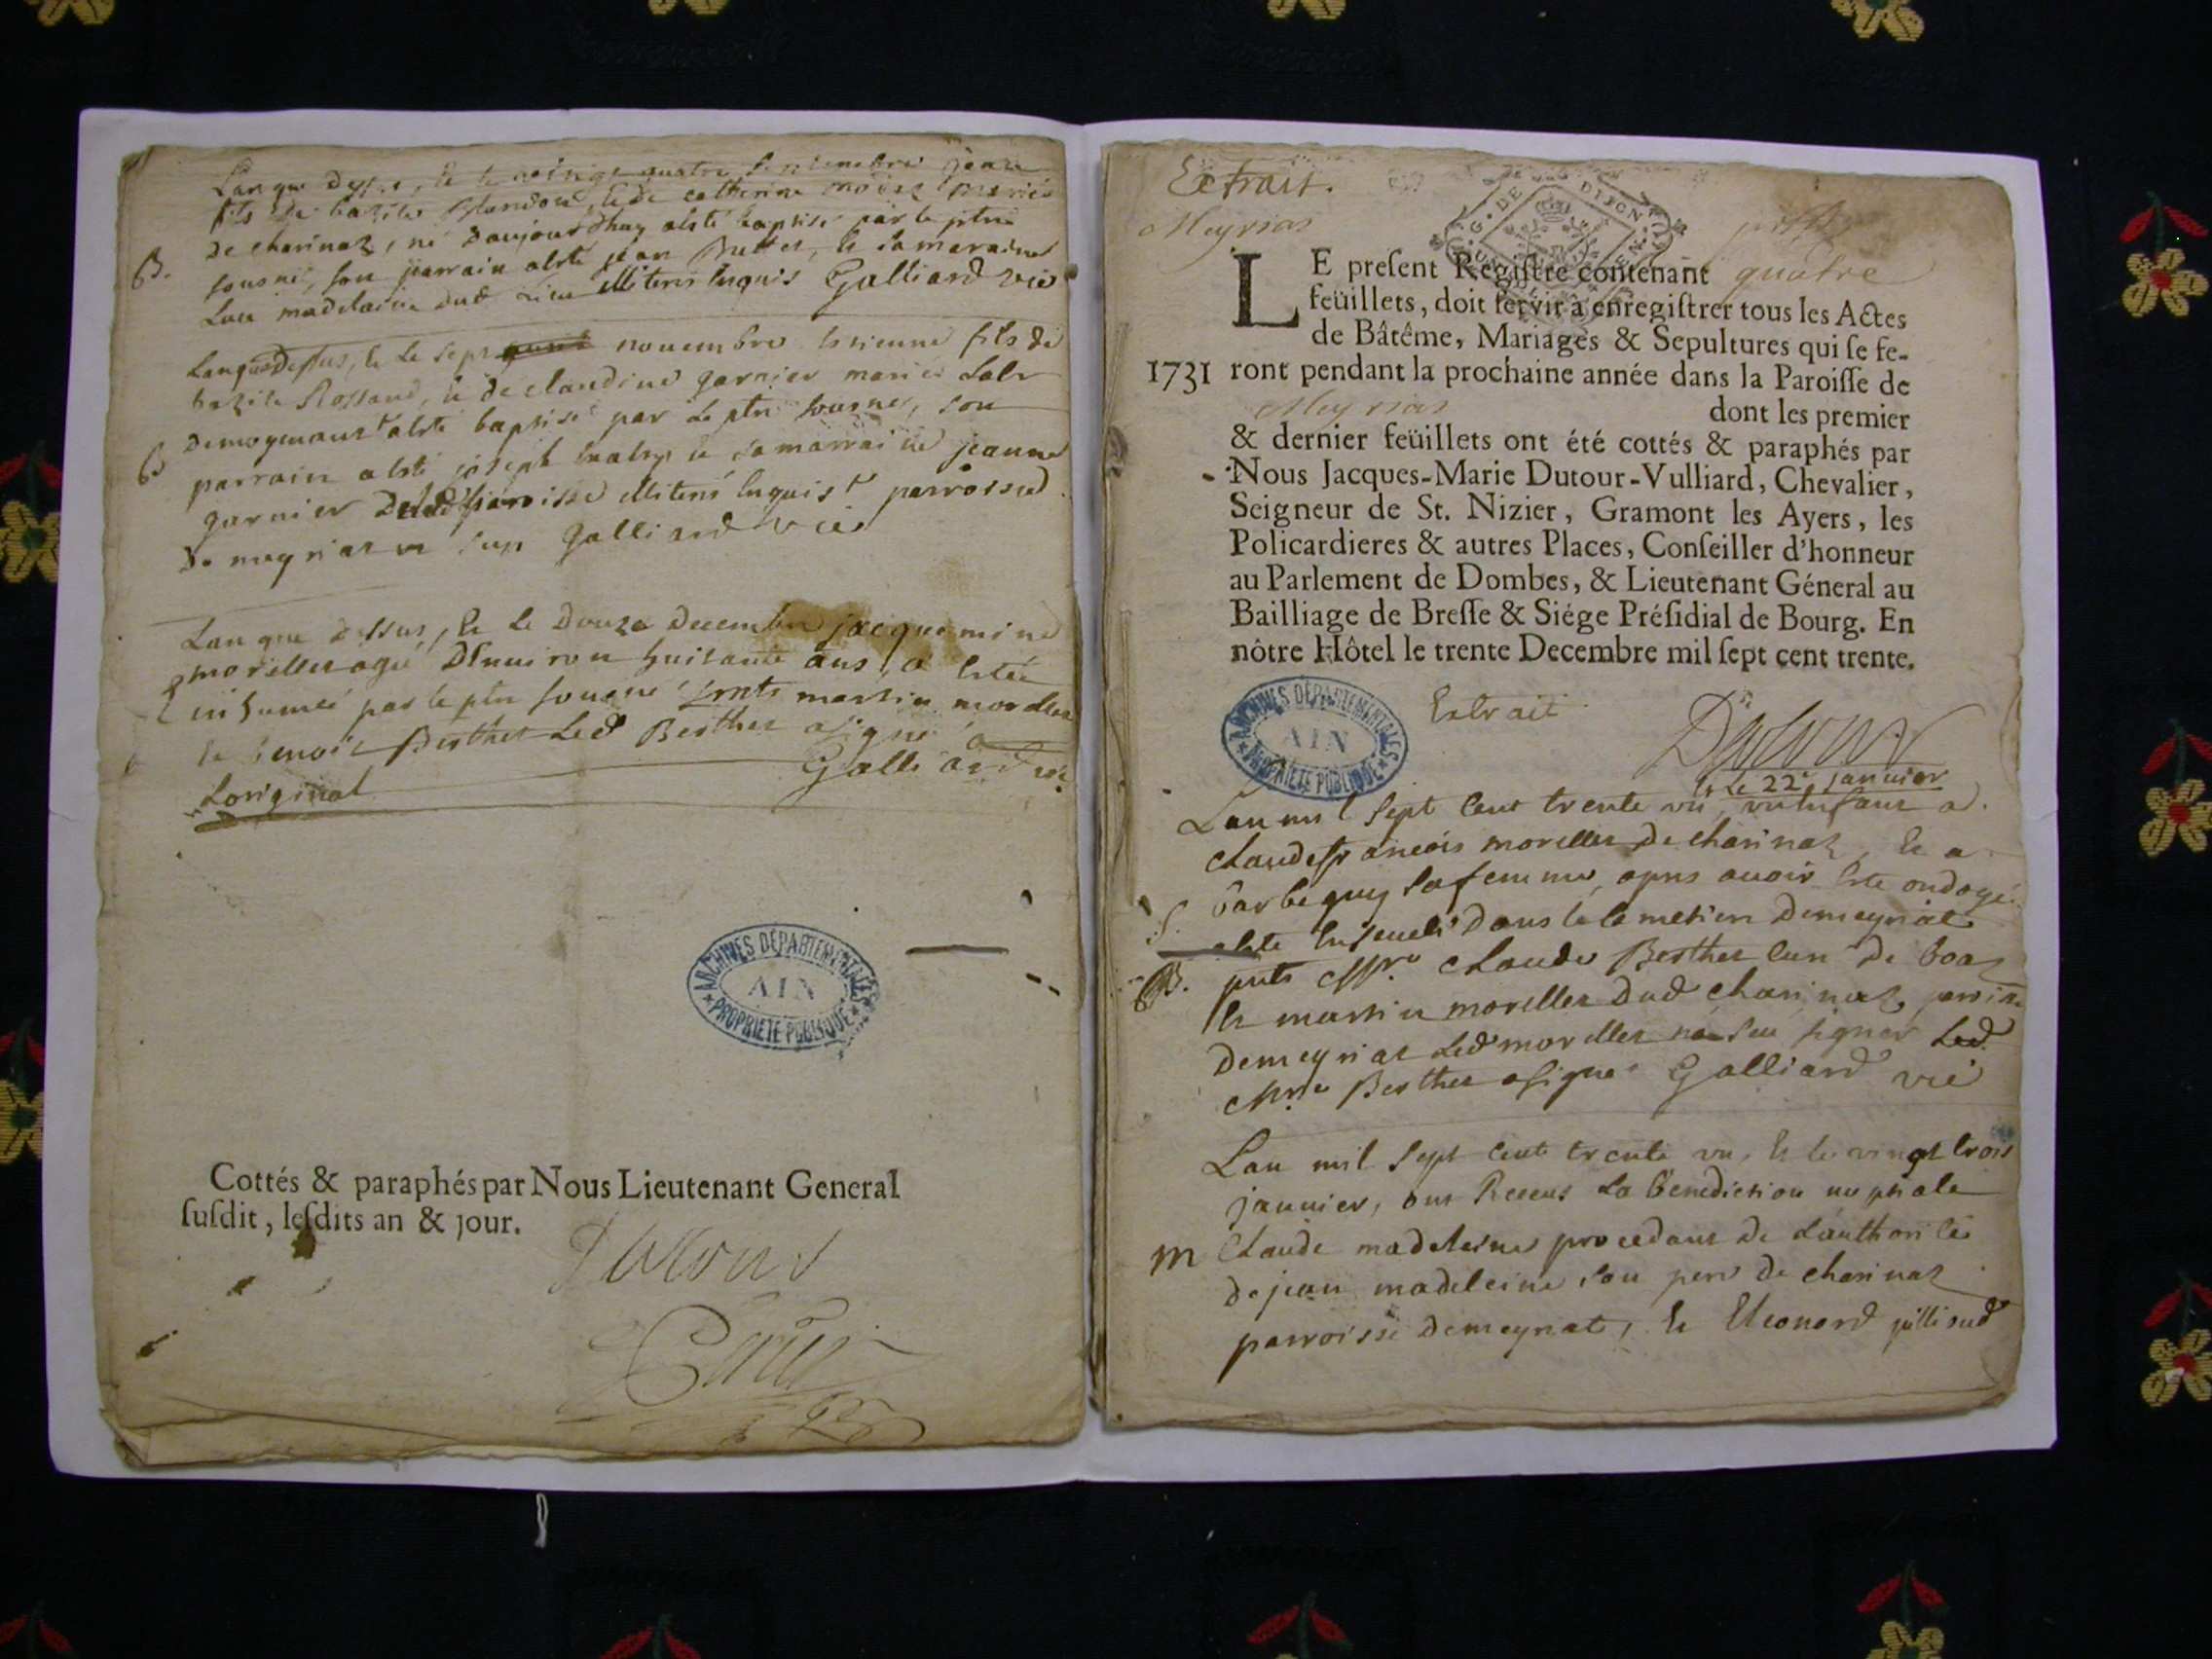 Lan que dessus, & le vingt quatre Septembre jean
fils de bazile, & de catherine mariés
de charinaz, né daujourdhuy aesté baptisé par le ptre
B.
sousné, son parrain aesté jean & sa maraine
madelaine dud lieu illiterés Inquis Galliard vic
Lan que dessus, & le sept novembre estienne fils de
bazile Rossand, & de claudine garnier mariés
B
demoymant aesté baptisé par le ptre sousné, son
parrain aesté joseph & sa marraine jeanne
garnier paroisse illiterés Inquis parroisse
de meyriat Galliard vic
Lan que dessus, & le Douze Decembre jacquemine
S morellet agée Denviron huitante ans, a Estée
inhumée par le ptre sousné, pnts martin morellet
& benoit Berthet Led Berthet asigné a
Loriginal Galliard vic.
ARCHIVES DÉPARTEMENTALES
AIN
PROPRIÉTÉ PUBLIQUE
Cottés & paraphés par Nous Lieutenant General
susdit, lesdits an & jour.
Dutour
Extrait.
Meyriat
G. DE DIJON
LE present Registre contenant quatre
feüillets, doit servir à enregistrer tous les Actes
de Bâtême, Mariages & Sepultures qui se fe-
1731 ront pendant la prochaine année dans la Paroisse de
Meyriat dont les premier
& dernier feüillets ont été cottés & paraphés par
Nous Jacques-Marie Dutour-Vulliard, Chevalier,
Seigneur de St. Nizier, Gramont les Ayers, les
Policardieres & autres Places, Conseiller d'honneur
au Parlement de Dombes, & Lieutenant Géneral au
Bailliage de Bresse & Siége Présidial de Bourg. En
nôtre Hôtel le trente Decembre mil sept cent trente.
ARCHIVES DÉPARTEMENTALES
AIN
PROPRIÉTÉ PUBLIQUE
Extrait
Dutour
& Le 22e janvier
Lan mil sept Cent trente un, un enfant a
claude francois morellet de charinaz, & a
barbe guy sa femme, apres avoir Esté ondoyé
S.
aesté Enseveli dans le Cemetiere demeyriat
B.
pnts Mre claude Berthet Curé de boaz
& martin morellet Dud charinaz paroisse
demeyriat Led morellet na sceu signer Led.
Mre Berthet asigné Galliard vic
Lan mil Sept Cent trente un, & le vingt trois
janvier, ont Receus La benediction nuptiale
m Claude madeleine procedant de Lauthorité
de jean madeleine son pere de charinaz
parroisse demeyriat, & Eleonord